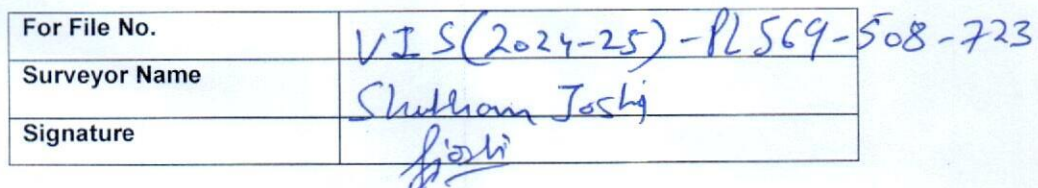 For File No. VIS(2024-25)-PL569-508-723
Surveyor Name Shubham Joshi
Signature Sjoshi